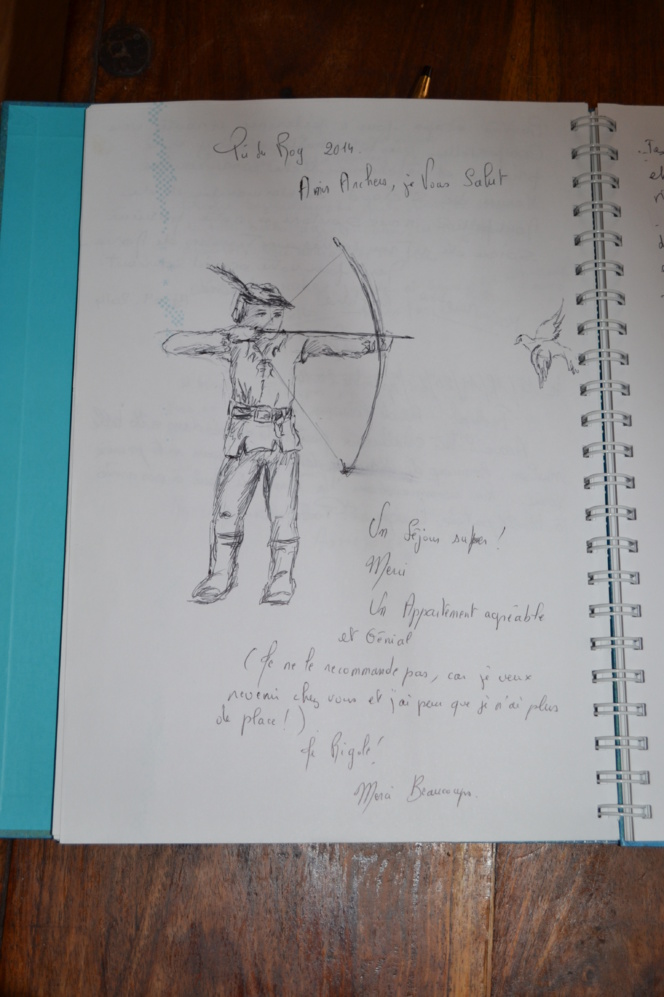 Pui du Roy 2014.
Amis Archers, je Vous Salut
Un Séjour super!
Merci
Un Appartement agréable
et Génial
(Je ne le recommande pas, car je veux
revenir chez vous et j'ai peur que je n'ai plus
de place!)
Je Rigole!
Merci Beaucoup.